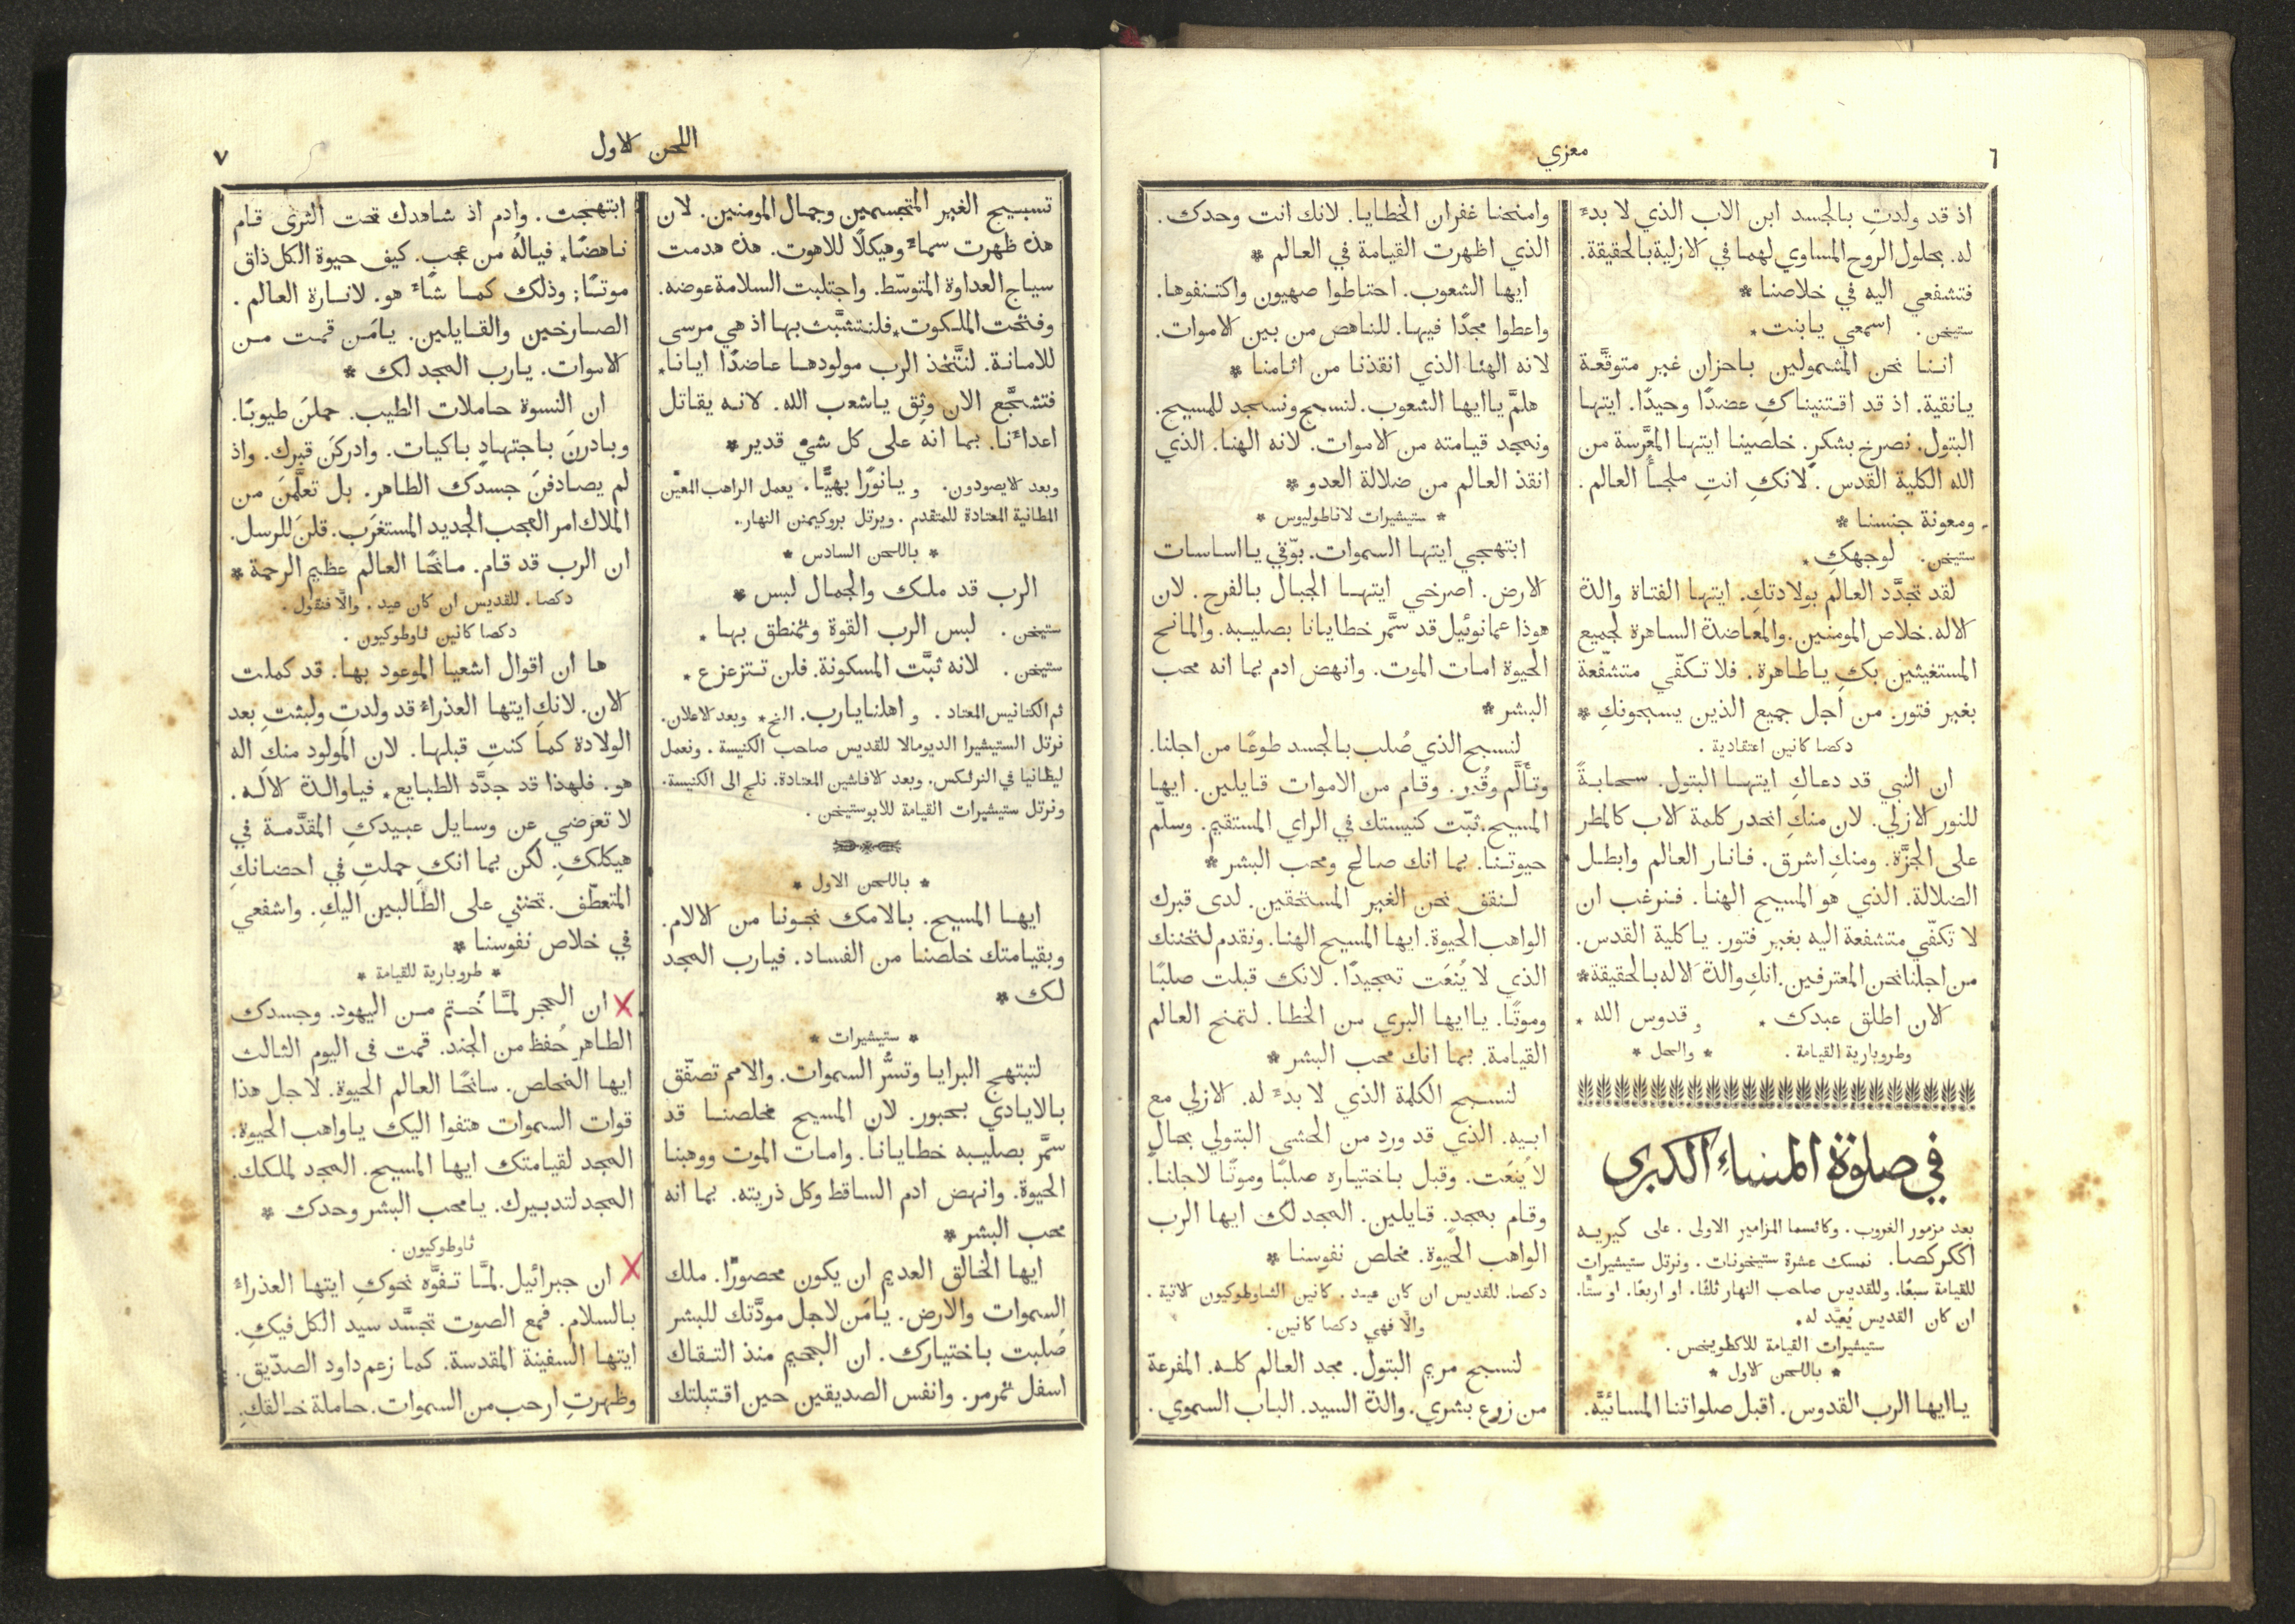 ٦
معزي
اذ قد ولدتِ بالجسد ابن الاب الذي لا بدءَ
له. بحلول الروح المساوي لهما في الازلية بالحقيقة.
فتشفعي اليه في خلاصنا *
ستيخن. اسمعي يا بنت *
اننا نحن المشمولين باحزان غير متوقَّعة
يا نقية. اذ قد اقتنيناكِ عضدًا وحيدًا. ايتها
البتول. نصرخ بشكرٍ. خلصينا ايتها المعَّرسة من
الله الكلية القدس. لانكِ انتِ ملجأُ العالم.
ومعونة جنسنا *
ستيخن. لوجهكِ *
لقد تجدَّد العالم بولادتكِ. ايتها الفتاة والدة
الاله. خلاص المومنين. والمعاضدة الساهرة لجميع
المستغيثين بكِ يا طاهرة. فلا تكفّي متشفّعة
بغير فتور. من اجل جميع الذين يسبحونكِ *
دكصا كانين اعتقادية.
ان النبي قد دعاكِ ايتها البتول. سحابةً
للنور الازلي. لان منكِ انحدر كلمة الاب كالمطر
على الجزَّة. ومنكِ اشرق. فانار العالم وابطل
الضلالة. الذي هو المسيح الهنا. فنرغب ان
لا تكفّي متشفعة اليه بغير فتور. يا كلية القدس.
من اجلنا نحن المعترفين. انكِ والدة الاله بالحقيقة *
الان اطلق عبدك * و قدوس الله *
وطروبارية القيامة. * والحل *
في صلوة المساءِ الكبرى
بعد مزمور الغروب. وكاثسما المزامير الاولى. على كيريه
اككركصا. نمسك عشرة ستيخونات. ونرتل ستيشيرات
للقيامة سبعًا. وللقديس صاحب النهار ثلثًا. او اربعًا. او ستًّا.
ان كان القديس يُعيَّد له.
ستيشيرات القيامة للاكطويخس.
* باللحن الاول *
يا ايها الرب القدوس. اقبل صلواتنا المسائيَّة.
وامنحنا غفران الخطايا. لانك انت وحدك.
الذي اظهرت القيامة في العالم *
ايها الشعوب. احتاطوا صهيون واكتنفوها.
واعطوا مجدًا فيها. للناهض من بين الاموات.
لانه الهنا الذي انقذنا من اثامنا *
هلمَّ يا ايها الشعوب. لنسبح ونسجد للمسيح.
ونمجد قيامته من الاموات. لانه الهنا. الذي
انقذ العالم من ضلالة العدو *
* ستيشيرات لاناطوليوس *
ابتهجي ايتها السموات. بوّقي يا اساسات
الارض. اصرخي ايتها الجبال بالفرح. لان
هوذا عمانوئيل قد سمَّر خطايانا بصليبه. والمانح
الحيوة امات الموت. وانهض ادم بما انه محب
البشر *
لنسبح الذي صُلب بالجسد طوعًا من اجلنا.
وتألَّم وقُبر. وقام من الاموات قايلين. ايها
المسيح. ثبّت كنيستك في الراي المستقيم. وسلّم
حيوتنا. بما انك صالح ومحب البشر *
لنقف نحن الغير المستحقين. لدى قبرك
الواهب الحيوة. ايها المسيح الهنا. ونقدم لتحننك
الذي لا يُنعَت تمجيدًا. لانك قبلت صلبًا
وموتًا. يا ايها البري من الخطا. لتمنح العالم
القيامة. بما انك محب البشر *
لنسبح الكلمة الذي لا بدءَ له. الازلي مع
ابيه. الذي قد ورد من الحشى البتولي بحالٍ
لا يُنعَت. وقبل باختياره صلبًا وموتًا لاجلنا.
وقام بمجدٍ. قايلين. المجد لك ايها الرب
الواهب الحيوة. مخلص نفوسنا *
دكصا. للقديس ان كان عيد. كانين الثاوطوكيون الاتية.
والّا فهي دكصا كانين.
لنسبح مريم البتول. مجد العالم كله. المفرعة
من زرع بشري. والدة السيد. الباب السموي.
اللحن الاول
٧
تسبيح الغير المتجسمين وجمال المومنين. لان
هذه ظهرت سماءً وهيكلًا للاهوت. هذه هدمت
سياج العداوة المتوسّط. واجتلبت السلامة عوضه.
وفتحت الملكوت * فلنتشبَّث بها اذ هي مرسى
للامانة. لنتَّخذ الرب مولودها عاضدًا ايانا *
فتشجَّع الان وثِق يا شعب الله. لانه يقاتل
اعداءَنا. بما انه على كل شيٍ قدير *
وبعد الايصودون. و يا نورًا بهيًّا. يعمل الراهب المعيّن
المطانية المعتادة للمتقدم. ويرتل بروكيمنن النهار.
* باللحن السادس *
الرب قد ملك والجمال لبس *
ستيخن. لبس الرب القوة وتمنطق بها *
ستيخن. لانه ثبَّت المسكونة. فلن تتزعزع *
ثم الكتانيس المعتاد. و اهلنا يا رب. الخ * وبعد الاعلان.
نرتل الستيشيرا الديومالا للقديس صاحب الكنيسة. ونعمل
ليطانيا في النرثكس. وبعد الافاشين المعتادة. نلج الى الكنيسة.
ونرتل ستيشيرات القيامة للابوستيخن.
* باللحن الاول *
ايها المسيح. بالامك نجونا من الالام.
وبقيامتك خلصنا من الفساد. فيا رب المجد
لك *
* ستيشيرات *
لتبتهج البرايا وتسُرَّ السموات. والامم تصفّق
بالايادي بحبور. لان المسيح مخلصنا قد
سمَّر بصليبه خطايانا. وامات الموت ووهبنا
الحيوة. وانهض ادم الساقط وكل ذريته. بما انه
محب البشر *
ايها الخالق العديم ان يكون محصورًا. ملك
السموات والارض. يا مَن لاجل مودَّتك للبشر
صُلبت باختيارك. ان الجحيم منذ التقاك
اسفل تمرمر. وانفس الصديقين حين اقتبلتك
ابتهجت. وادم اذ شاهدك تحت الثرى قام
ناهضًا. فيا لهُ من عجبٍ. كيف حيوة الكل ذاق
موتًا؛ وذلك كما شاءَ هو. لانارة العالم.
الصارخين والقايلين. يا مَن قمت من
الاموات. يا رب المجد لك *
ان النسوة حاملات الطيب. حملنَ طيوبًا.
وبادرنَ باجتهادٍ باكيات. وادركنَ قبرك. واذ
لم يصادفنَ جسدك الطاهر. بل تعلَّمنَ من
الملاك امر العجب الجديد المستغرَب. قلنَ للرسل.
ان الرب قد قام. مانحًا العالم عظيم الرحمة *
دكصا. للقديس ان كان عيد. والّا فنقول.
دكصا كانين ثاوطوكيون.
ها ان اقوال اشعيا الموعود بها. قد كملت
الان. لانكِ ايتها العذراءُ قد ولدتِ ولبثتِ بعد
الولادة كما كنتِ قبلها. لان المولود منكِ اله
هو. فلهذا قد جدَّد الطبايع * فيا والدة الاله.
لا تعرضي عن وسايل عبيدكِ المقدَّمة في
هيكلكِ. لكن بما انكِ حملتِ في احضانكِ
المتعطّف. تحنني على الطالبين اليكِ. واشفعي
في خلاص نفوسنا *
* طروبارية للقيامة *
ان الحجر لمَّا خُتم من اليهود. وجسدك
الطاهر حُفظ من الجند. قمت في اليوم الثالث
ايها المخلص. مانحًا العالم الحيوة. لاجل هذا
قوات السموات هتفوا اليك يا واهب الحيوة.
المجد لقيامتك ايها المسيح. المجد لملكك.
المجد لتدبيرك. يا محب البشر وحدك *
ثاوطوكيون.
ان جبرائيل. لمَّا تفوَّه نحوكِ ايتها العذراءُ
بالسلام. فمع الصوت تجسَّد سيد الكل فيكِ.
ايتها السفينة المقدسة. كما زعم داود الصدّيق.
وظهرتِ ارحب من السموات. حاملة خالقكِ.